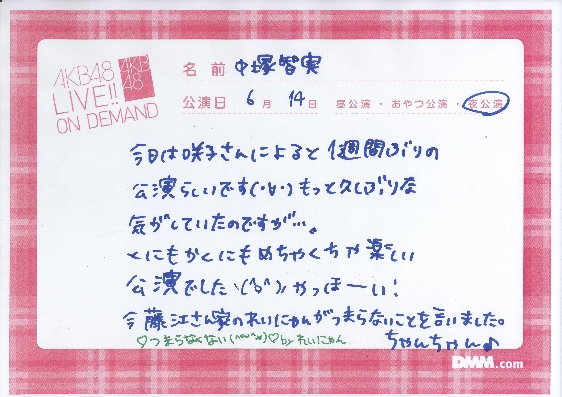 AKB48
LIVE!!
ON DEMAND
AKB
48
名前 中塚智実
公演日 6月 14日 昼公演・おやつ公演・夜公演
今日は咲子さんによると1週間ぶりの
公演らしいです(・∀・)もっと久しぶりな
気がしていたのですが…。
とにもかくにもめちゃくちゃ楽しい
公演でした\(^o^)/やっほーい!
今藤江さん家のれいにゃんがつまらないことを言いました。
♡つまらなくない(^ω^)♡byれいにゃん
ちゃんちゃん♪
DMM.com